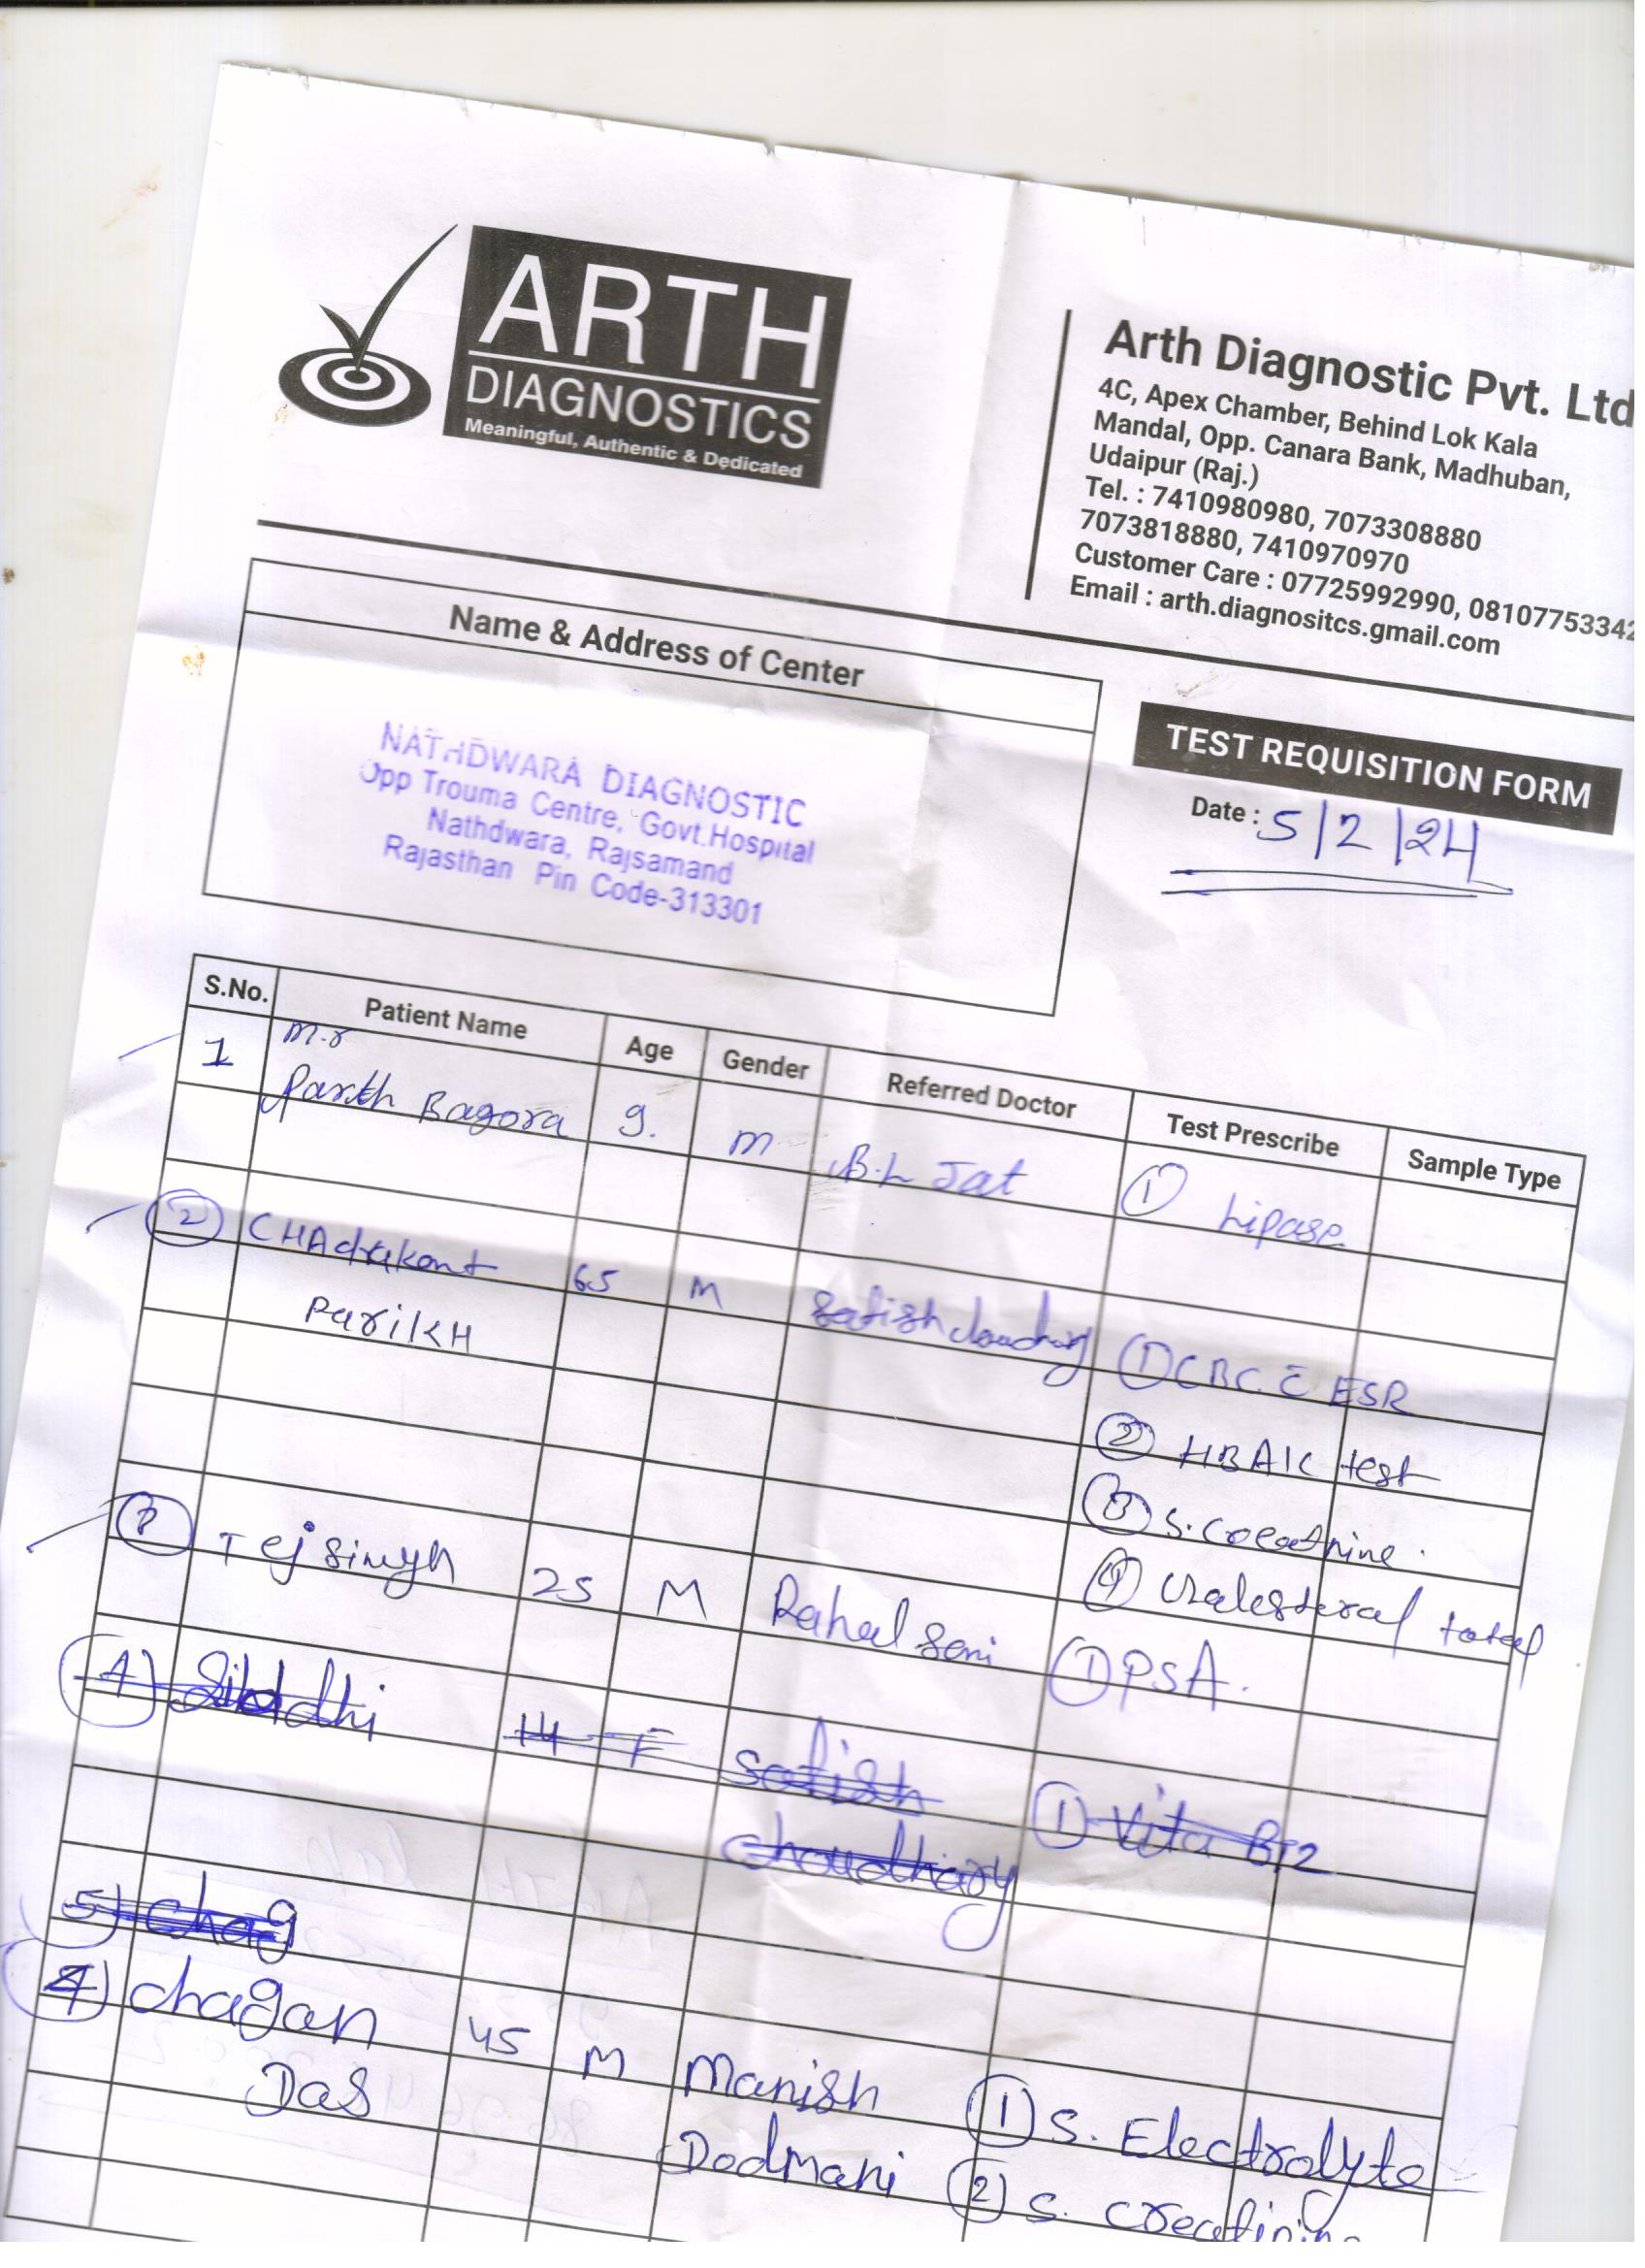 ARTH
DIAGNOSTICS
Meaningful, Authentic & Dedicated
Arth Diagnostic Pvt. Ltd
4C, Apex Chamber, Behind Lok Kala
Mandal, Opp. Canara Bank, Madhuban,
Udaipur (Raj.)
Tel. : 7410980980, 7073308880
7073818880, 7410970970
Customer Care : 07725992990, 08107753342
Email : arth.diagnositcs.gmail.com
Name & Address of Center
NATHDWARA DIAGNOSTIC
Opp Trouma Centre, Govt.Hospital
Nathdwara, Rajsamand
Rajasthan Pin Code-313301
TEST REQUISITION FORM
Date : 5/2/24
S.No. Patient Name Age Gender Referred Doctor Test Prescribe Sample Type
M.r
1 Parth Bagora 9. M B.L Jat ① Lipase
② CHAdrakant 65 M Satish ① CBC C̄ ESR
ParikH
② HBAIC test
③ S. Creatnine.
④ total
Tej Singh 25 M Rahul Soni ① PSA.
4) Siddhi 14 F Satish ① Vita B12
Choudhary
5) Chag
4) Chagan 45 M Manish ① S. Electrolyte
Das Dodmani ② S.